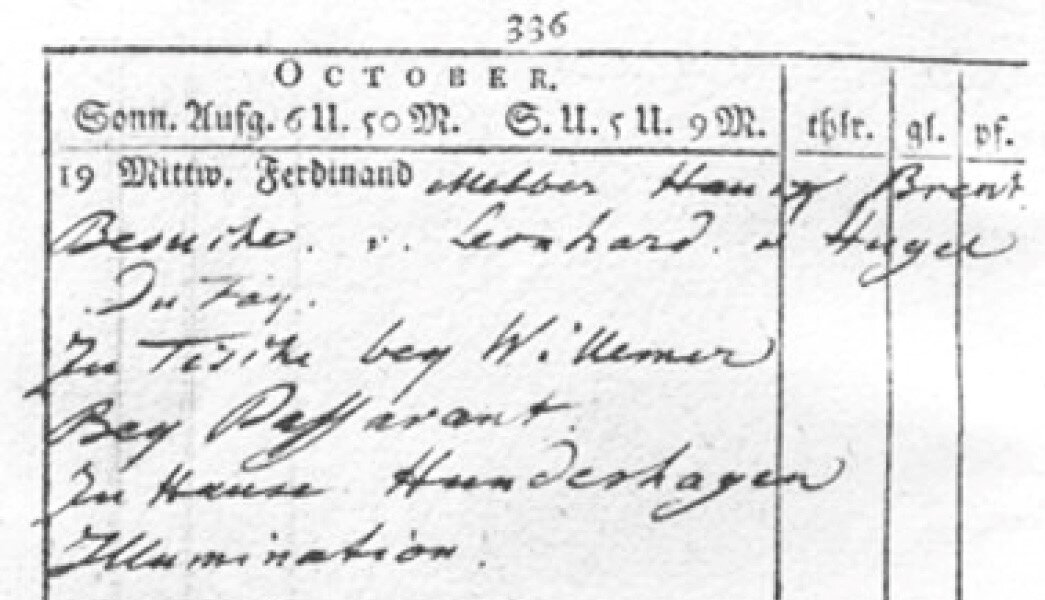 336
OCTOBER.
Sonn. Aufg. 6 U. 50 M. S. U. 5 U. 9 M. thlr. gl. pf.
19 Mittw. Ferdinand Melber Brent.
Besuche. v. Leonhard. v Hügel
Du Fay.
Zu Tische bey Willemer
Bey Passavant.
Zu Hause Hundeshagen
Illumination.